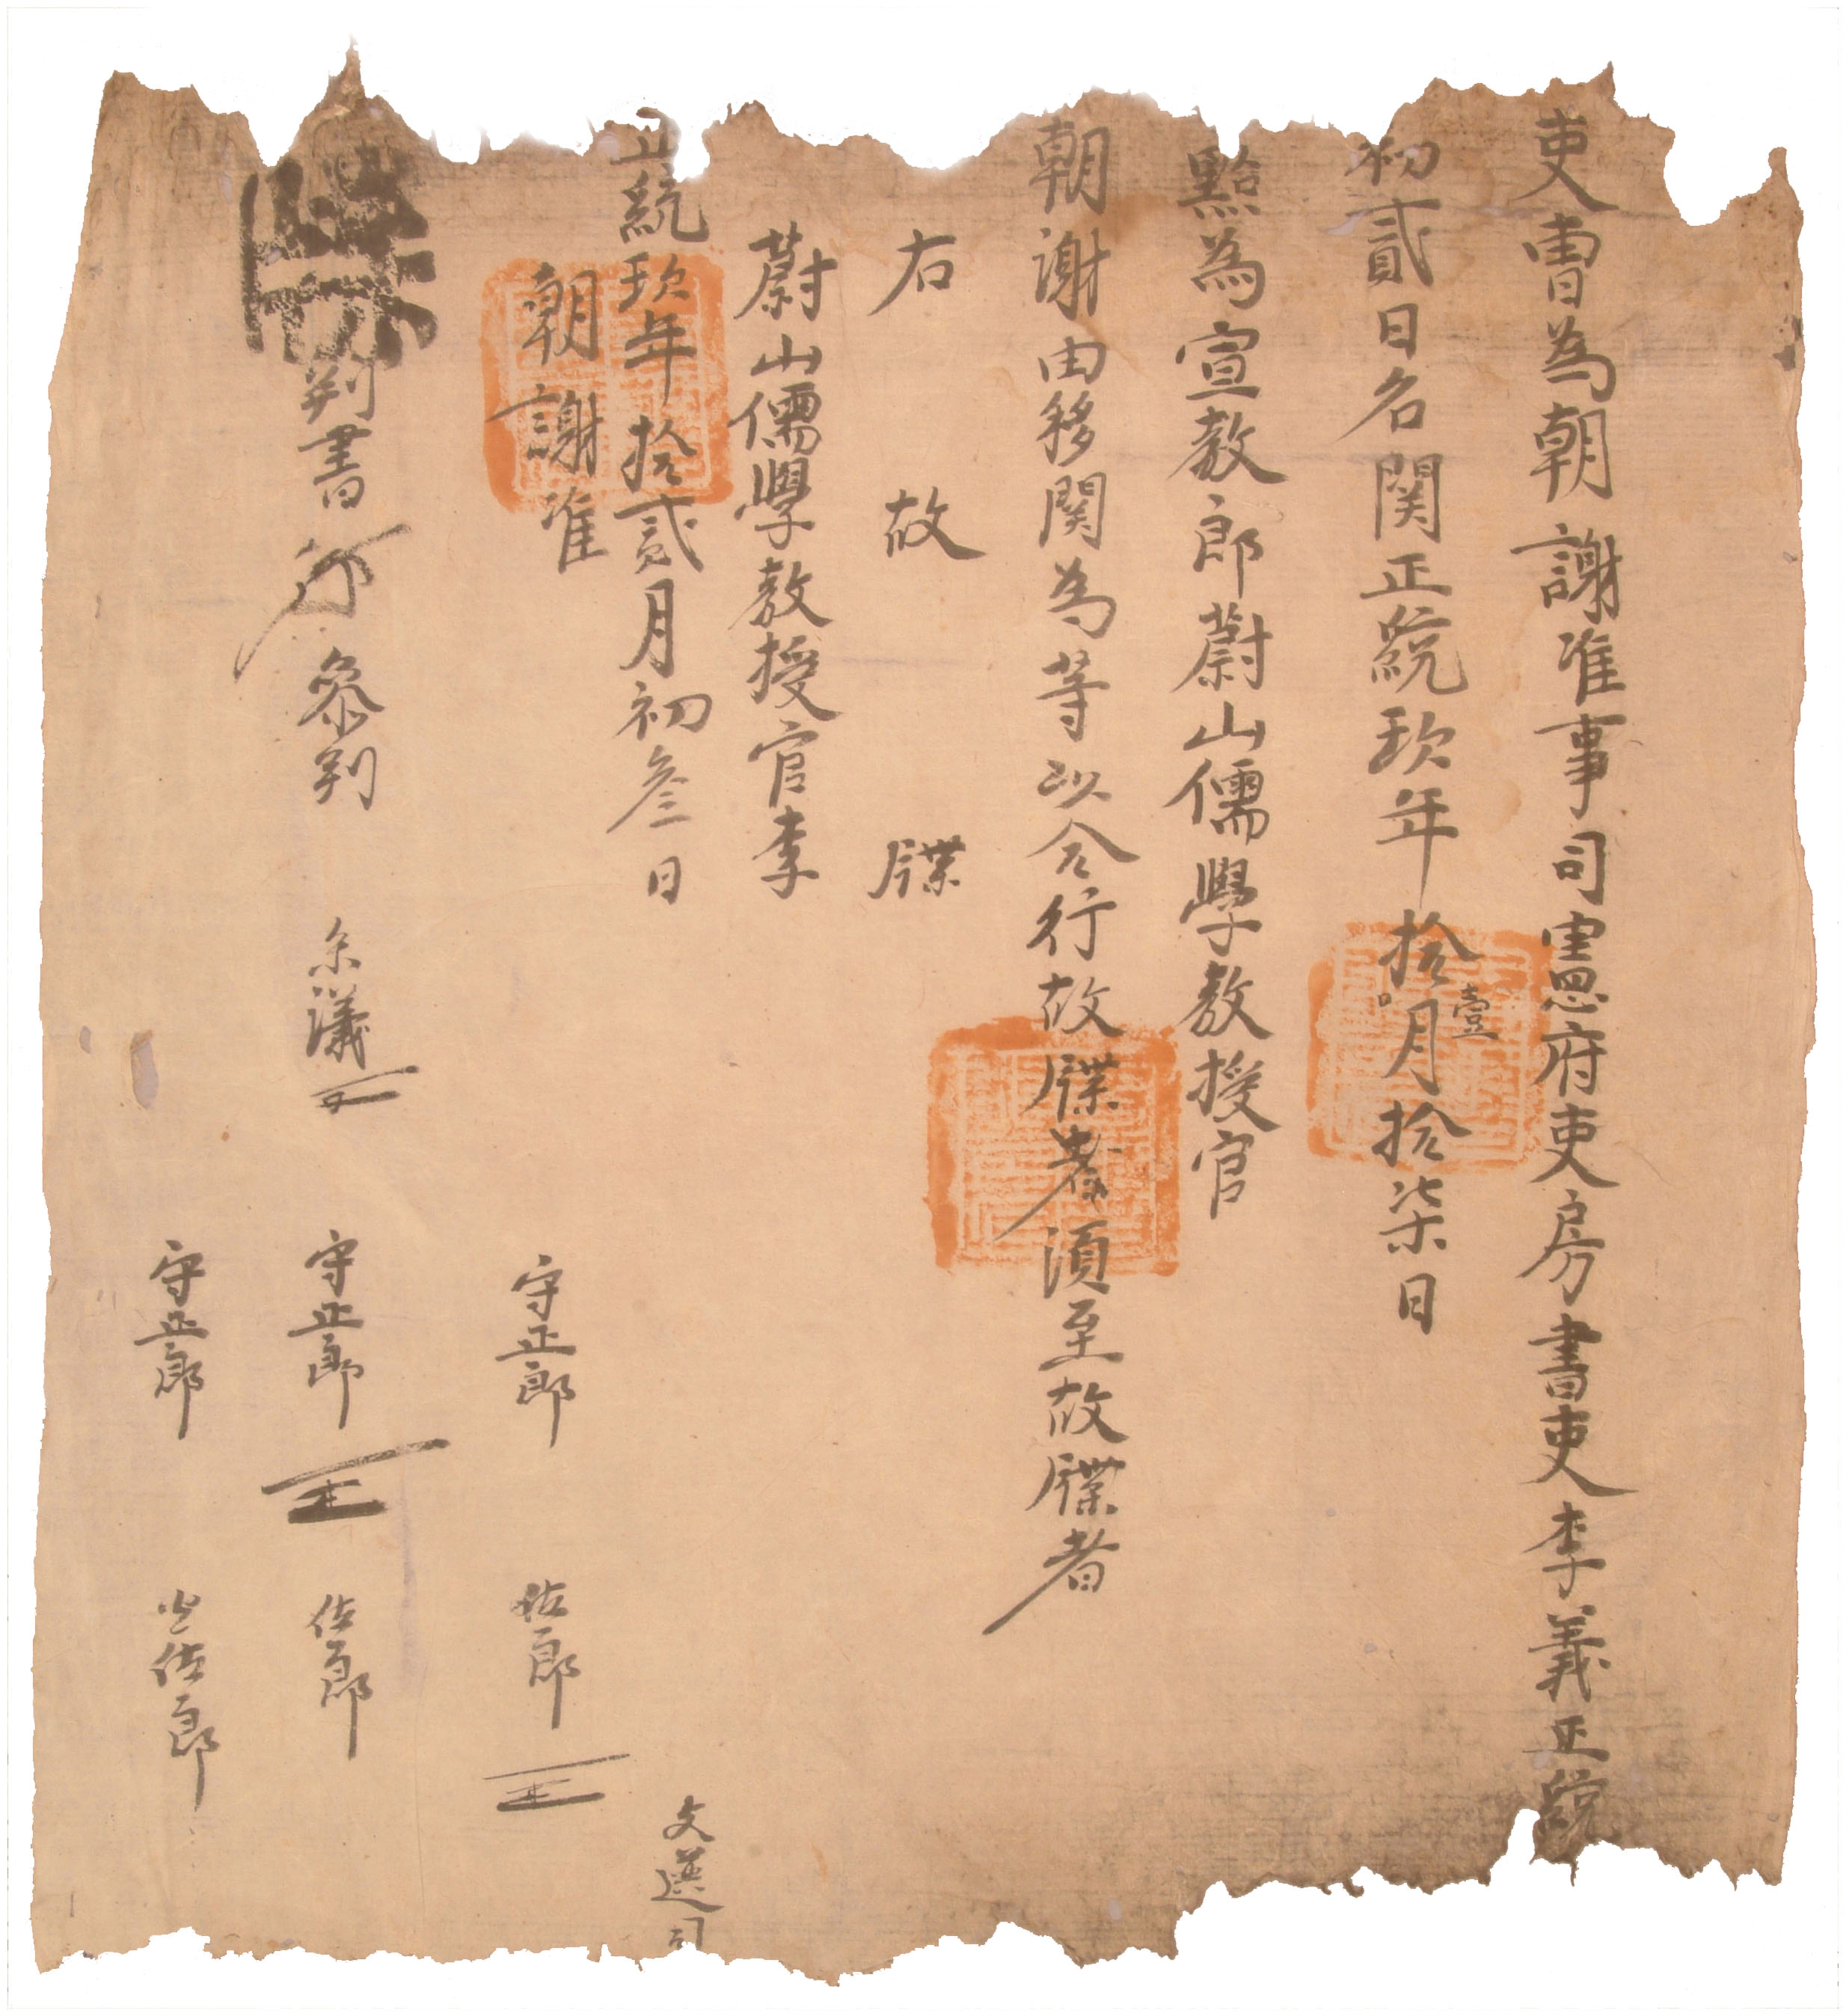 吏曹為朝謝准事司憲府吏房書吏李義正統
初貳日名関正統玖年拾壹月拾柒日
點為宣敎郎蔚山儒學敎授官
朝謝由移関為等以合行故牒者湏至故牒者
右故牒
蔚山儒學敎授官李
正統玖年拾貳月初叁日
朝謝准
文選司
守正郎 佐郎
判書 叅判 叅議 守正郎 佐郎
守正郎 佐郎